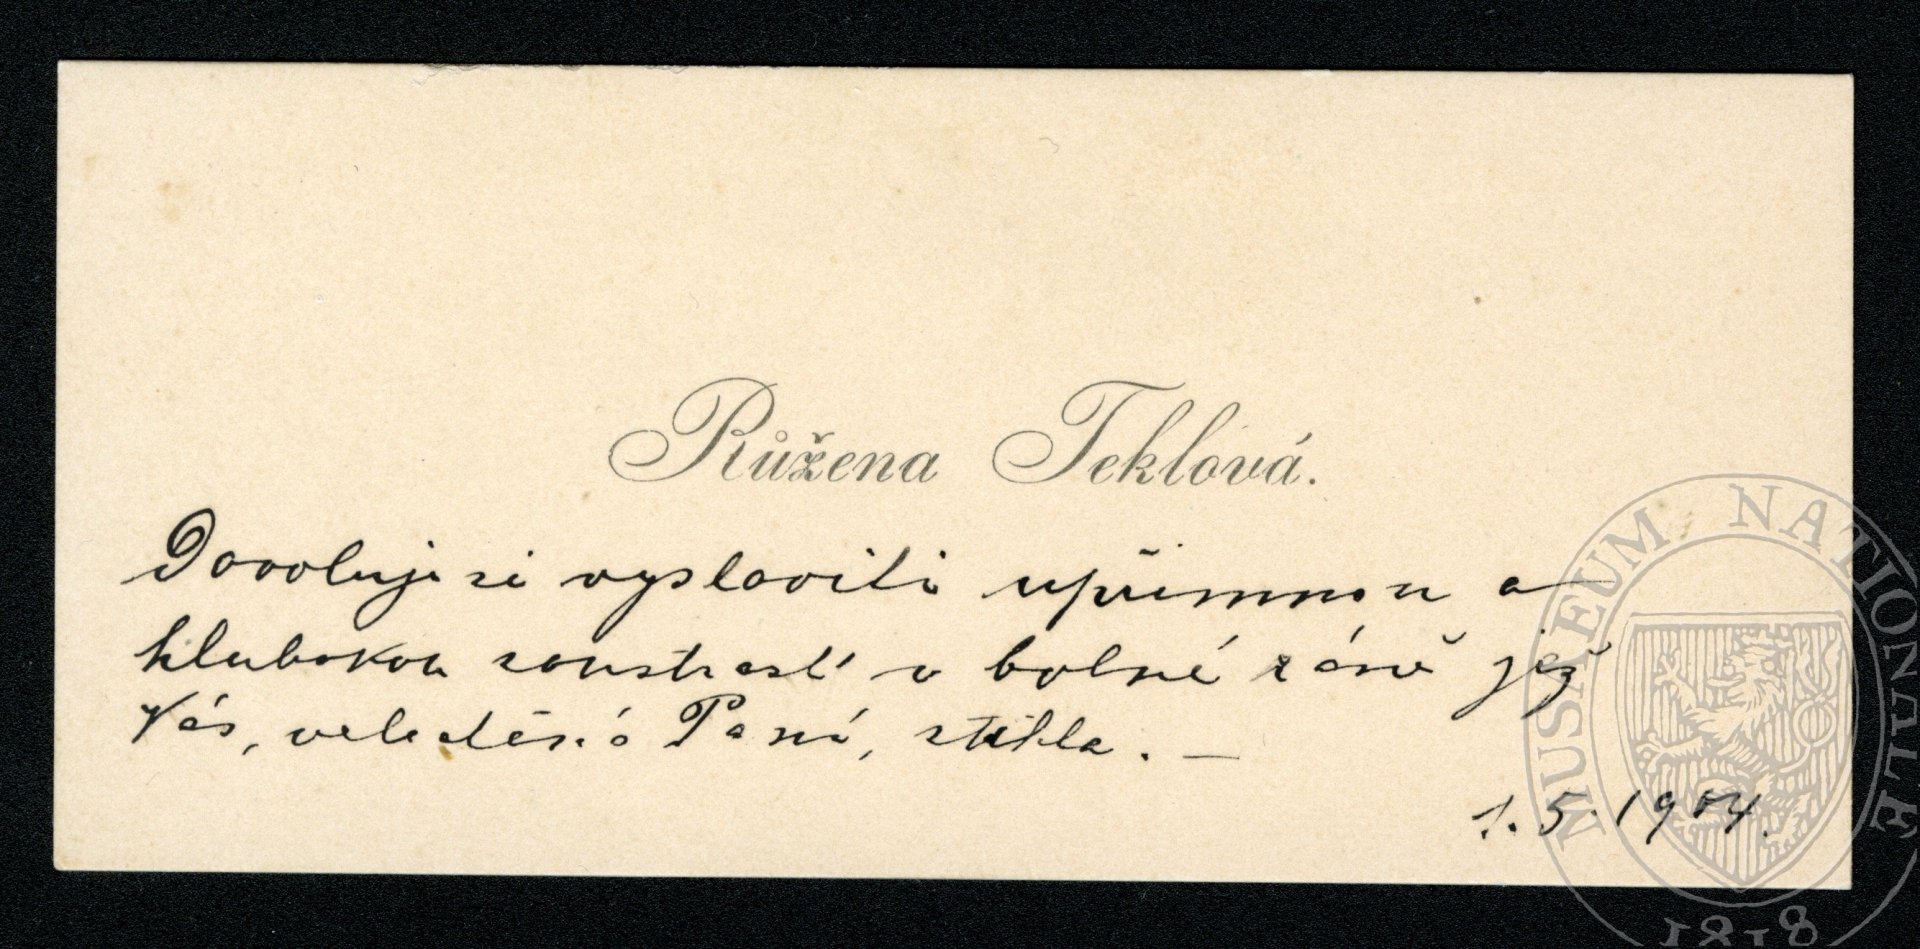 Růžena Teklová.
Dovoluji si vysloviti upřímnou a
hlubokou soustrast v bolné ráně jež
Vás, veledůst. Paní, stihla. —
1. 5. 1904.
MUSAEUM NATIONALE
1818